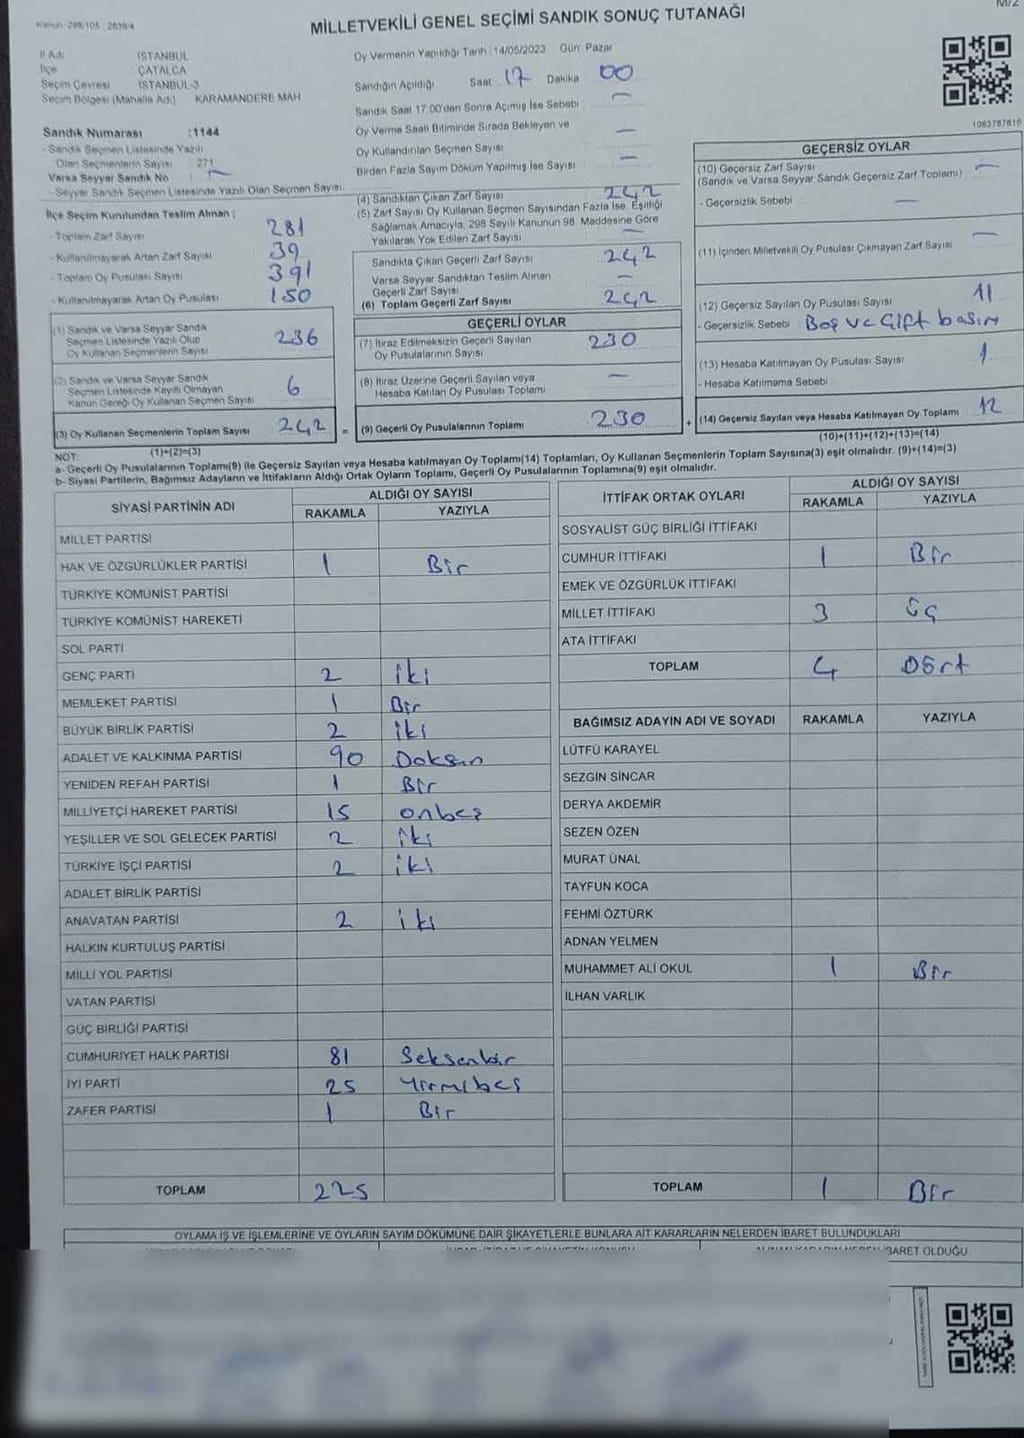 Kanun: 298/105 : 2839/4
M/2
MİLLETVEKİLİ GENEL SEÇİMİ SANDIK SONUÇ TUTANAĞI
İl Adı İSTANBUL
İlçe ÇATALCA
Seçim Çevresi İSTANBUL-3
Seçim Bölgesi (Mahalle Adı) KARAMANDERE MAH
Sandık Numarası :1144
- Sandık Seçmen Listesinde Yazılı
Olan Seçmenlerin Sayısı 271
Varsa Seyyar Sandık No : —
- Seyyar Sandık Seçmen Listesinde Yazılı Olan Seçmen Sayısı
İlçe Seçim Kurulundan Teslim Alınan ;
- Toplam Zarf Sayısı 281
- Kullanılmayarak Artan Zarf Sayısı 39
- Toplam Oy Pusulası Sayısı 391
- Kullanılmayarak Artan Oy Pusulası 150
(1) Sandık ve Varsa Seyyar Sandık
Seçmen Listesinde Yazılı Olup
Oy Kullanan Seçmenlerin Sayısı 236
(2) Sandık ve Varsa Seyyar Sandık
Seçmen Listesinde Kayıtlı Olmayan
Kanun Gereği Oy Kullanan Seçmen Sayısı 6
(3) Oy Kullanan Seçmenlerin Toplam Sayısı 242 =
(1)+(2)=(3)
Oy Vermenin Yapıldığı Tarih :14/05/2023 Gün: Pazar
Sandığın Açıldığı Saat: 17 Dakika 00
Sandık Saat 17:00'den Sonra Açımış İse Sebebi : —
Oy Verme Saati Bitiminde Sırada Bekleyen ve
Oy Kullandırılan Seçmen Sayısı —
Birden Fazla Sayım Döküm Yapılmış İse Sayısı —
(4) Sandıktan Çıkan Zarf Sayısı 242
(5) Zarf Sayısı Oy Kullanan Seçmen Sayısından Fazla İse, Eşitliği
Sağlamak Amacıyla, 298 Sayılı Kanunun 98. Maddesine Göre
Yakılarak Yok Edilen Zarf Sayısı —
Sandıkta Çıkan Geçerli Zarf Sayısı 242
Varsa Seyyar Sandıktan Teslim Alınan
Geçerli Zarf Sayısı —
(6) Toplam Geçerli Zarf Sayısı 242
GEÇERLİ OYLAR
(7) İtiraz Edilmeksizin Geçerli Sayılan
Oy Pusulalarının Sayısı 230
(8) İtiraz Üzerine Geçerli Sayılan veya
Hesaba Katılan Oy Pusulası Toplamı —
(9) Geçerli Oy Pusulalarının Toplamı 230 +
1063787816
GEÇERSİZ OYLAR
(10) Geçersiz Zarf Sayısı —
(Sandık ve Varsa Seyyar Sandık Geçersiz Zarf Toplamı)
- Geçersizlik Sebebi —
(11) İçinden Milletvekili Oy Pusulası Çıkmayan Zarf Sayısı —
(12) Geçersiz Sayılan Oy Pusulası Sayısı 11
- Geçersizlik Sebebi Boş ve Çift basım
(13) Hesaba Katılmayan Oy Pusulası Sayısı 1
- Hesaba Katılmama Sebebi
(14) Geçersiz Sayılan veya Hesaba Katılmayan Oy Toplamı 12
(10)+(11)+(12)+(13)=(14)
NOT:
a- Geçerli Oy Pusulalarının Toplamı(9) ile Geçersiz Sayılan veya Hesaba katılmayan Oy Toplamı(14) Toplamları, Oy Kullanan Seçmenlerin Toplam Sayısına(3) eşit olmalıdır. (9)+(14)=(3)
b- Siyasi Partilerin, Bağımsız Adayların ve İttifakların Aldığı Ortak Oyların Toplamı, Geçerli Oy Pusulalarının Toplamına(9) eşit olmalıdır.
SİYASİ PARTİNİN ADI ALDIĞI OY SAYISI
RAKAMLA YAZIYLA
MİLLET PARTİSİ
HAK VE ÖZGÜRLÜKLER PARTİSİ 1 Bir
TÜRKİYE KOMÜNİST PARTİSİ
TÜRKİYE KOMÜNİST HAREKETİ
SOL PARTİ
GENÇ PARTİ 2 iki
MEMLEKET PARTİSİ 1 Bir
BÜYÜK BİRLİK PARTİSİ 2 iki
ADALET VE KALKINMA PARTİSİ 90 Doksan
YENİDEN REFAH PARTİSİ 1 Bir
MİLLİYETÇİ HAREKET PARTİSİ 15 onbeş
YEŞİLLER VE SOL GELECEK PARTİSİ 2 iki
TÜRKİYE İŞÇİ PARTİSİ 2 iki
ADALET BİRLİK PARTİSİ
ANAVATAN PARTİSİ 2 iki
HALKIN KURTULUŞ PARTİSİ
MİLLİ YOL PARTİSİ
VATAN PARTİSİ
GÜÇ BİRLİĞİ PARTİSİ
CUMHURİYET HALK PARTİSİ 81 Seksenbir
İYİ PARTİ 25 Yirmibeş
ZAFER PARTİSİ 1 Bir
TOPLAM 225
İTTİFAK ORTAK OYLARI ALDIĞI OY SAYISI
RAKAMLA YAZIYLA
SOSYALİST GÜÇ BİRLİĞİ İTTİFAKI
CUMHUR İTTİFAKI 1 Bir
EMEK VE ÖZGÜRLÜK İTTİFAKI
MİLLET İTTİFAKI 3 Üç
ATA İTTİFAKI
TOPLAM 4 Dört
BAĞIMSIZ ADAYIN ADI VE SOYADI RAKAMLA YAZIYLA
LÜTFÜ KARAYEL
SEZGİN SİNCAR
DERYA AKDEMİR
SEZEN ÖZEN
MURAT ÜNAL
TAYFUN KOCA
FEHMİ ÖZTÜRK
ADNAN YELMEN
MUHAMMET ALİ OKUL 1 Bir
İLHAN VARLIK
TOPLAM 1 Bir
OYLAMA İŞ VE İŞLEMLERİNE VE OYLARIN SAYIM DÖKÜMÜNE DAİR ŞİKAYETLERLE BUNLARA AİT KARARLARIN NELERDEN İBARET BULUNDUKLARI
İBARET OLDUĞU